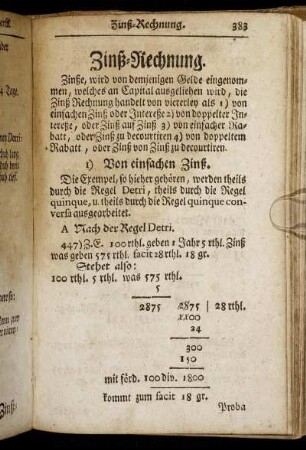 Zinß-Rechnung. 383
Zinß-Rechnung.
Zinße, wird von demjenigen Gelde eingenom-
men, welches an Capital ausgeliehen wird, die
Zinß Rechnung handelt von viererley als 1) von
einfachen Zinß oder Intereße 2) von doppelter In-
tereße, oder Zinß auf Zinß 3) von einfacher Ra-
batt, oder Zinß zu decourtiren 4) von doppeltem
Rabatt, oder Zinß von Zinß zu decourtiren.
1) Von einfachen Zinß.
Die Exempel, so hieher gehören, werden theils
durch die Regel Detri, theils durch die Regel
quinque, u. theils durch die Regel quinque con-
versa ausgearbeitet.
A Nach der Regel Detri.
447) Z.E. 100 rthl. geben 1 Jahr 5 rthl. Zinß
was geben 575 rthl. facit 28 rthl. 18 gr.
Stehet also:
100 rthl. 5 rthl. was 575 rthl.
5
2875 2875 | 28 rthl.
1100
24
300
150
mit förd. 100 div. 1800
kommt zum facit 18 gr.
Proba